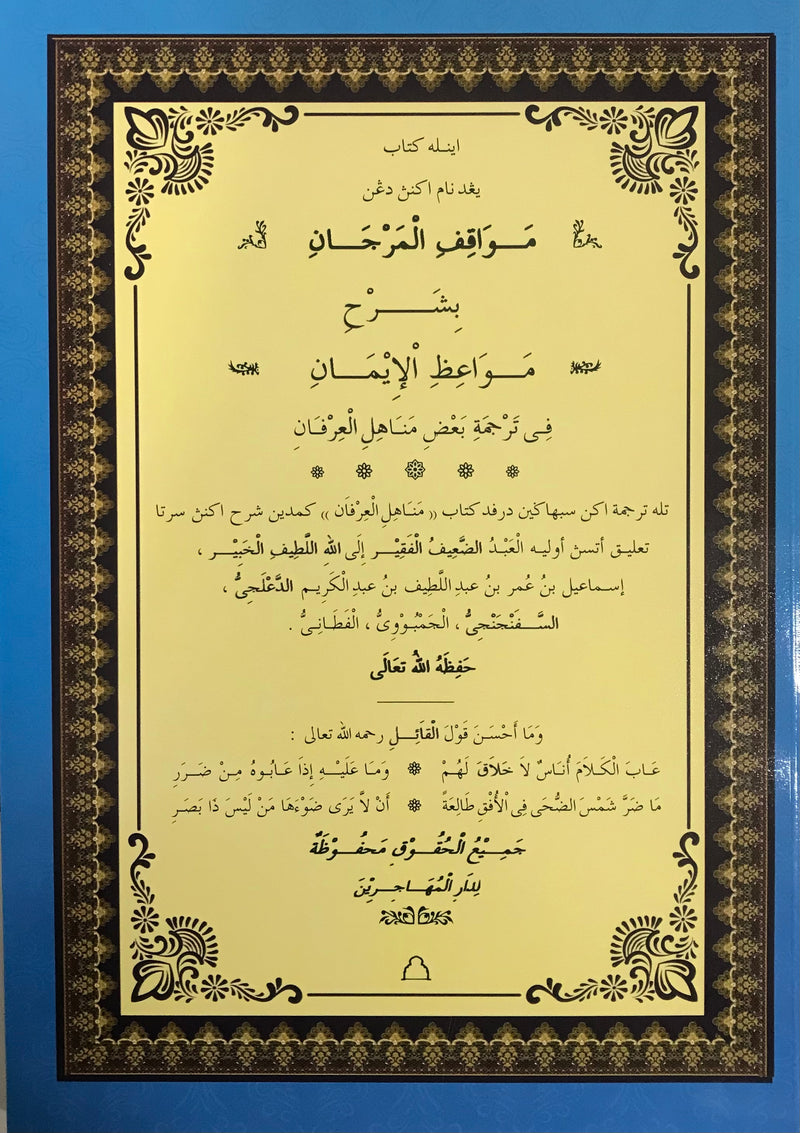 اينله كتاب
يڠد نام اكنث دڠن
مَوَاقِفِ الْمَرْجَانِ
بِشَرْحِ
مَوَاعِظِ الْإِيْمَانِ
فِى تَرْجَمَةِ بَعْضِ مَنَاهِلِ الْعِرْفَانِ
تله ترجمة اكن سبهاڬين درفد كتاب (( مَنَاهِلِ الْعِرْفَان )) كمدين شرح اكنث سرتا
تعليق أتسث أوليه الْعَبْدُ الضَّعِيفُ الْفَقِيْر إِلَى اللهِ اللَّطِيفِ الْخَبِيْر ،
إسماعيل بنُ عُمر بنُ عبدِ اللطيف بنُ عبدِ الْكَرِيم الدَّعْلَجِىُّ ،
السَّفَنْجَنْجِىُّ ، الْجَمْبُوْوِىُّ ، الْفَطَانِىُّ .
حَفِظَهُ اللهُ تعَالَى
وَمَا أَحْسَنَ قَوْلَ الْقَائِلِ رحمه الله تعالى :
عَابَ الْكَلَامَ أُنَاسٌ لَا خَلَاقَ لَهُمْ ❁ وَمَا عَلَيْهِ إِذَا عَابُوهُ مِنْ ضَرَرِ
مَا ضَرَّ شَمْسَ الضُّحَى فِى الْأُفْقِ طَالِعَةً ❁ أَنْ لَا يَرَى ضَوْءَهَا مَنْ لَيْسَ ذَا بَصَرِ
جَمِيْعُ الْحُقُوْقِ مَحْفُوْظَةٌ
لِدَارِ الْمُهَاجِرِيْنَ